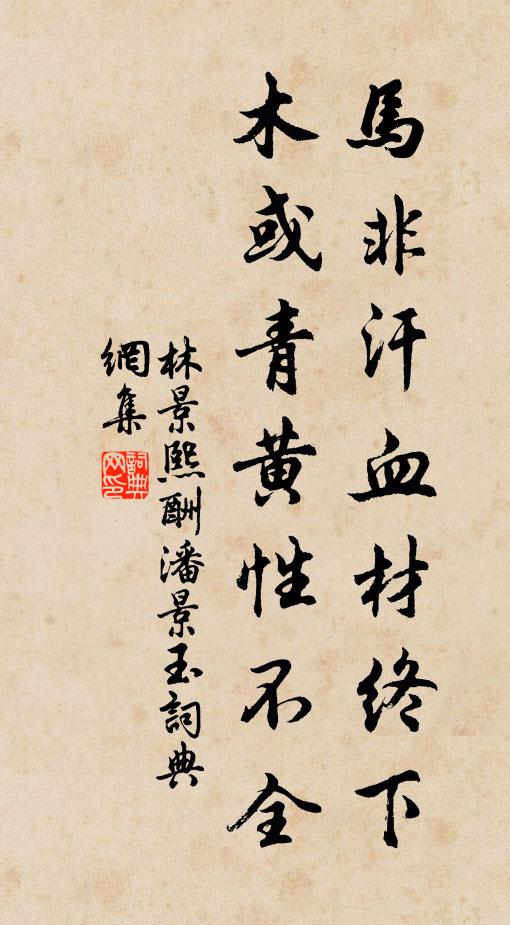 馬非汗血材終下
木或青黃性不全
林景熙酬潘景玉詞典
網集
詞典
网印